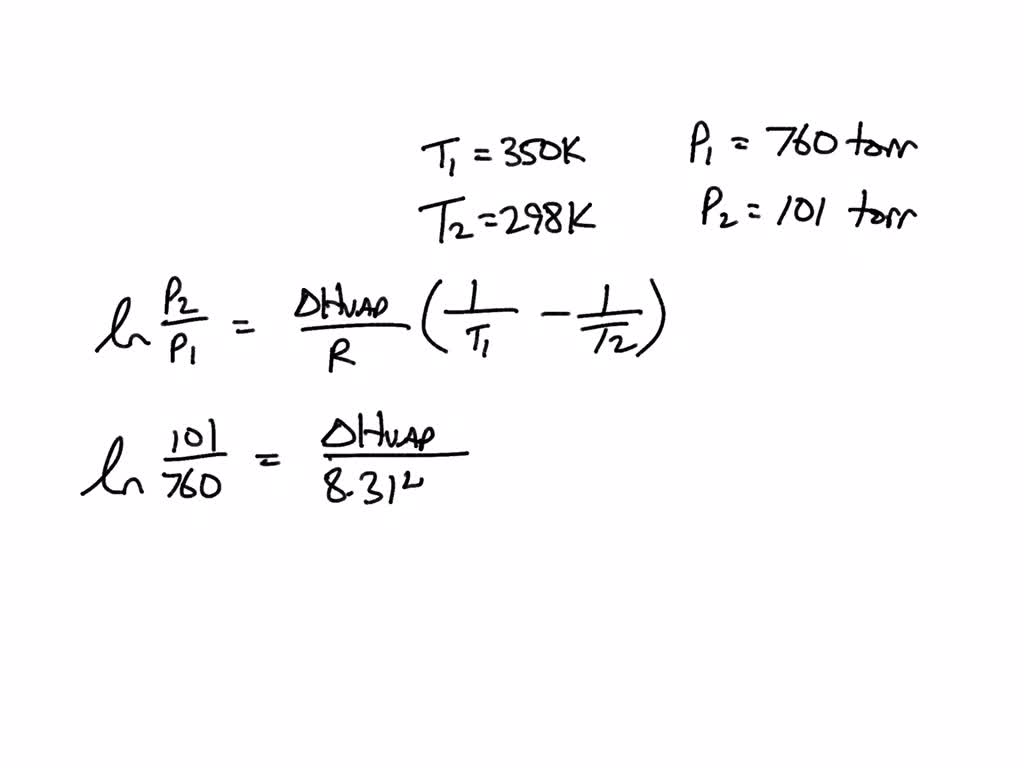 T₁ = 350K P₁ = 760 torr
T₂ = 298K P₂ = 101 torr
ln P₂/P₁ = ΔHVAP/R (1/T₁ - 1/T₂)
ln 101/760 = ΔHVAP/8.312